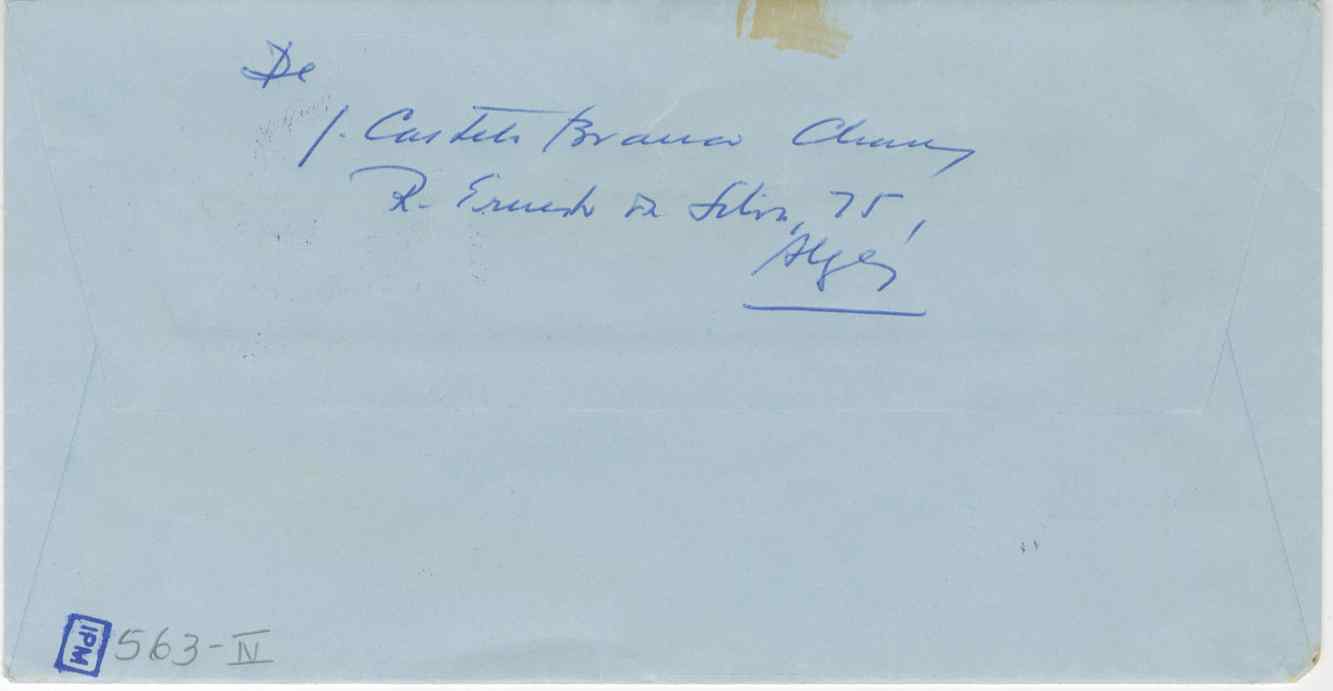 De
J. Castelo Branco Chaves
R. Ernesto da Silva, 75,
Algés
IPM 563-IV